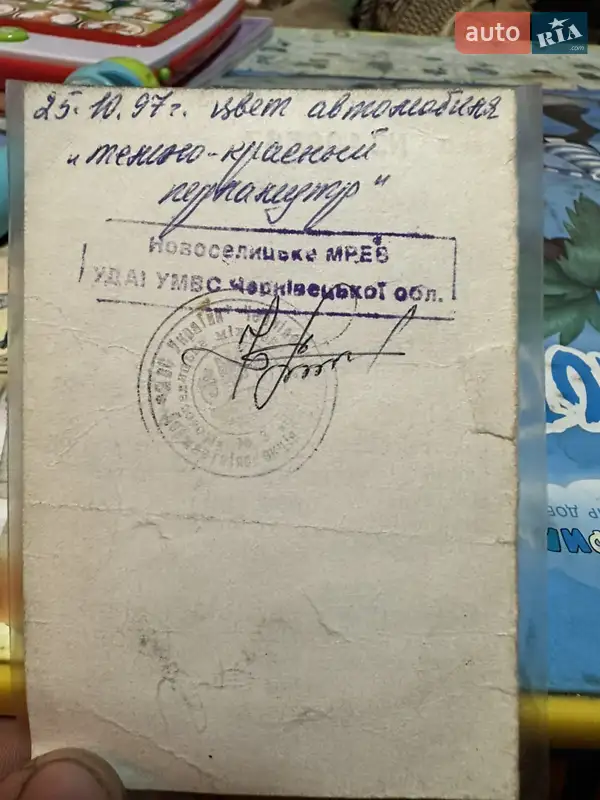 auto RIA.com
25.10.97г. цвет автомобиля
"темно-красный
перламутр"
Новоселицьке МРЕВ
УДАІ УМВС Чернівецької обл.
України